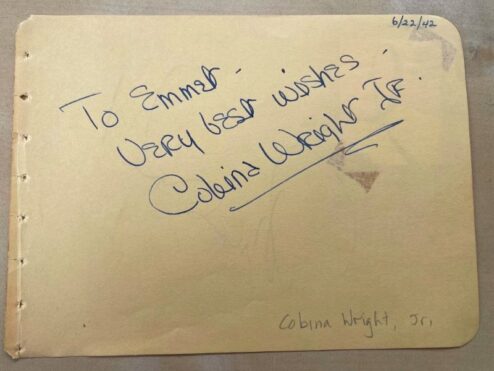 6/22/42
To Emmet -
Very best wishes -
Cobina Wright Jr.
Cobina Wright, Jr.